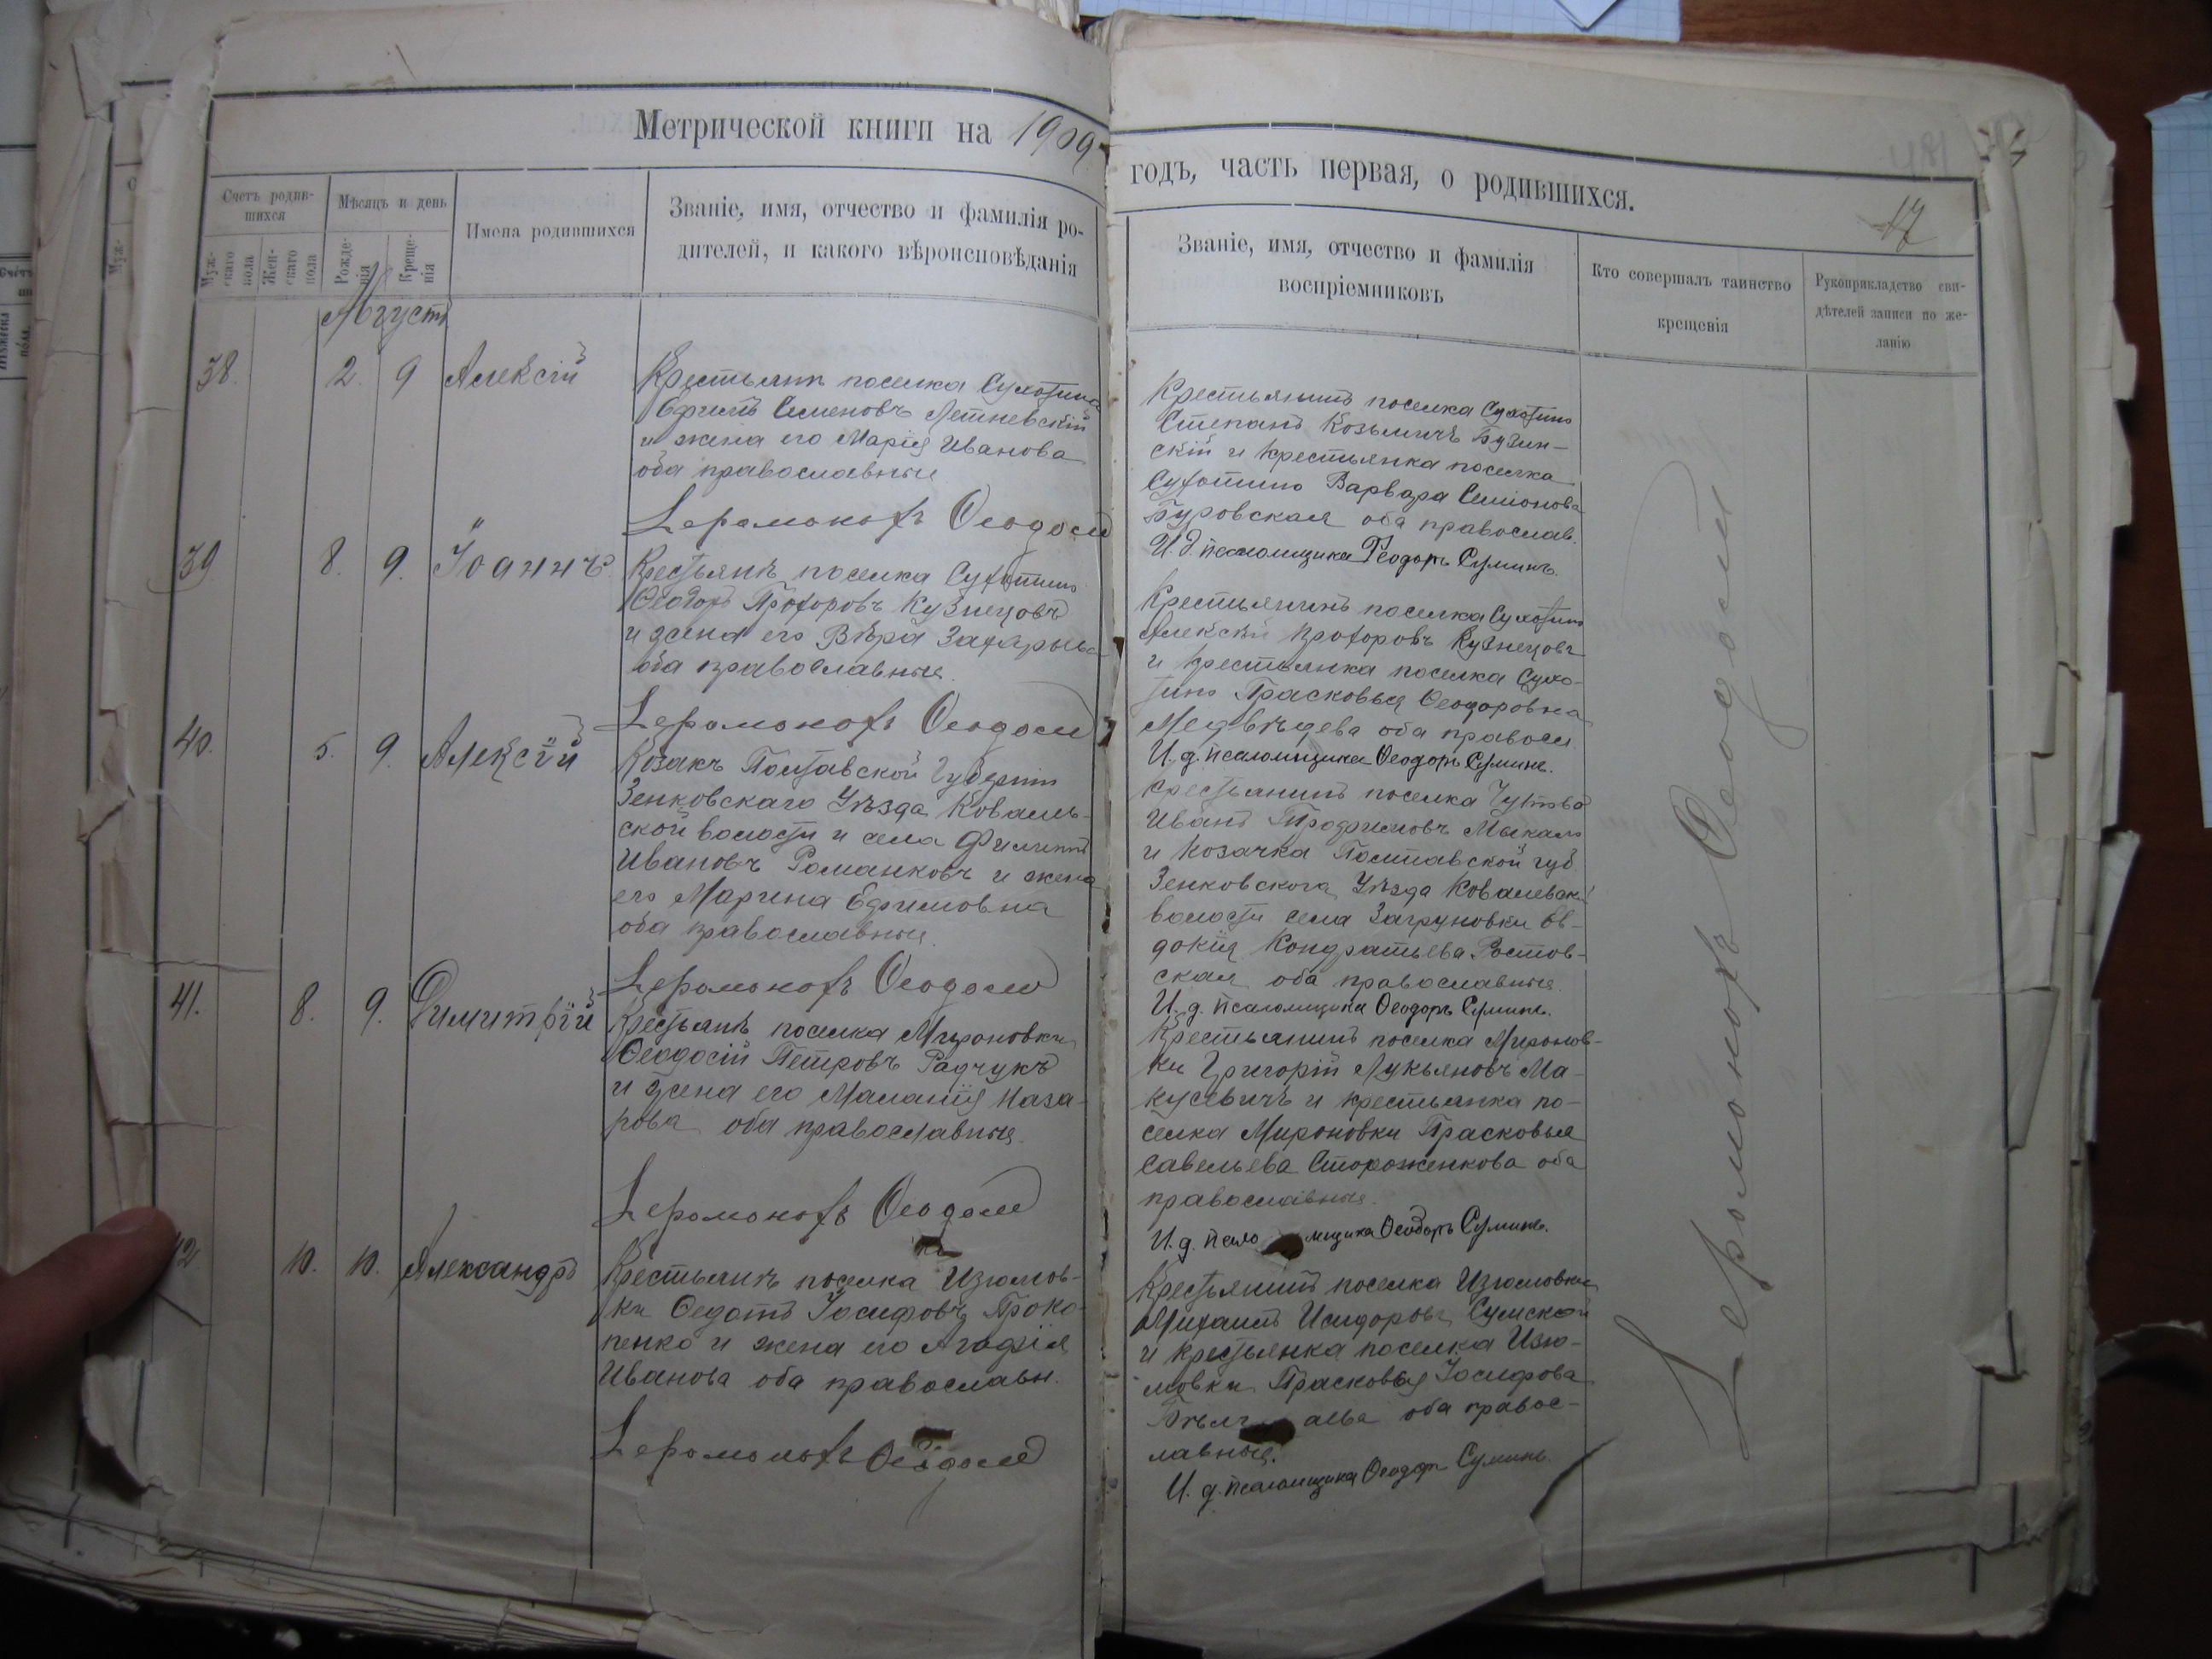 Метрической книги на 1909
годъ, часть первая, о родившихся.
481
17
Счетъ родив-
шихся
Муж-
скаго
пола
Жен-
скаго
пола
Мѣсяцъ и день
Рожде-
нія
Креще-
нія
Имена родившихся
Званіе, имя, отчество и фамилія ро-
дителей, и какого вѣроисповѣданія
Званіе, имя, отчество и фамилія
воспріемниковъ
Кто совершалъ таинство
крещенія
Рукоприкладство сви-
дѣтелей записи по же-
ланію
Августъ
38. 2. 9 Алексій
Крестьянин поселка Сухотина
Ефимъ Семеновъ Летневскій
и жена его Марія Иванова
оба православные
Іеромонахъ Ѳеодосій
Крестьянинъ поселка Сухотино
Степанъ Козьмичъ Бузин-
скій и крестьянка поселка
Сухотино Варвара Симіонова
Буровская оба православ.
И.д. псаломщика Ѳеодоръ Суминъ.
39 8. 9. Іоаннъ
Крестьянъ поселка Сухотино
Ѳеодоръ Прохоровъ Кузнецовъ
и жена его Вѣра Захарьева
оба православные.
Іеромонахъ Ѳеодосій
Крестьянинъ поселка Сухотино
Алексѣй Прохоровъ Кузнецовъ
и крестьянка поселка Сухо-
тино Прасковья Ѳеодоровна
Медвѣдева оба правосл.
И.д. псаломщика Ѳеодоръ Суминъ.
40. 5. 9. Алексій
Козакъ Полтавской Губерніи
Зенковскаго Уѣзда Коваль-
ской волости и села Филиппъ
Ивановъ Романковъ и жена
его Марина Ефимовна
оба православные.
Іеромонахъ Ѳеодосій
Крестьянинъ поселка
Иванъ Трофимовъ Мыкало
и козачка Полтавской губ
Зенковскога Уѣзда Ковалевской
волости села Загруновки Ев-
докія Кондратьева Ростов-
ская оба православные.
И.д. псаломщика Ѳеодоръ Суминъ.
41. 8. 9. Димитрій
Крестьянъ поселка Мироновки
Ѳеодосій Петровъ Радчукъ
и жена его Маланія Наза-
рова оба православные.
Іеромонахъ Ѳеодосій
Крестьянинъ поселка Миронов-
ки Григорій Лукьяновъ Ма-
кусевичъ и крестьянка по-
селка Мироновки Прасковья
Савельева Стороженкова оба
православные.
И.д. псало мщика Ѳеодоръ Суминъ.
42. 10. 10. Александръ
Крестьянинъ поселка Изюмов-
ки Ѳедотъ Іосифовъ Проко-
пенко и жена его Агафія
Иванова оба православн.
Іеромонахъ Ѳеодосій
Крестьянинъ поселка Изюмовки
Михаилъ Исидоровъ Сумской
и крестьянка поселка Изю-
мовки Прасковья Іосифова
оба правос-
лавные.
И.д. псаломщика Ѳеодоръ Суминъ.
Іеромонахъ Ѳеодосій